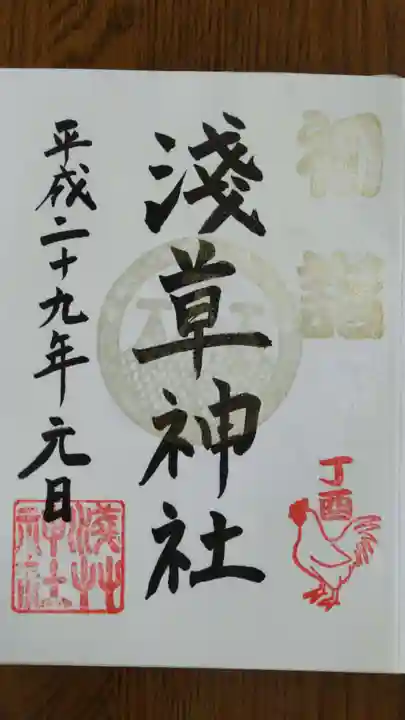 初詣
丁酉
淺草神社
平成二十九年元日
淺草神社